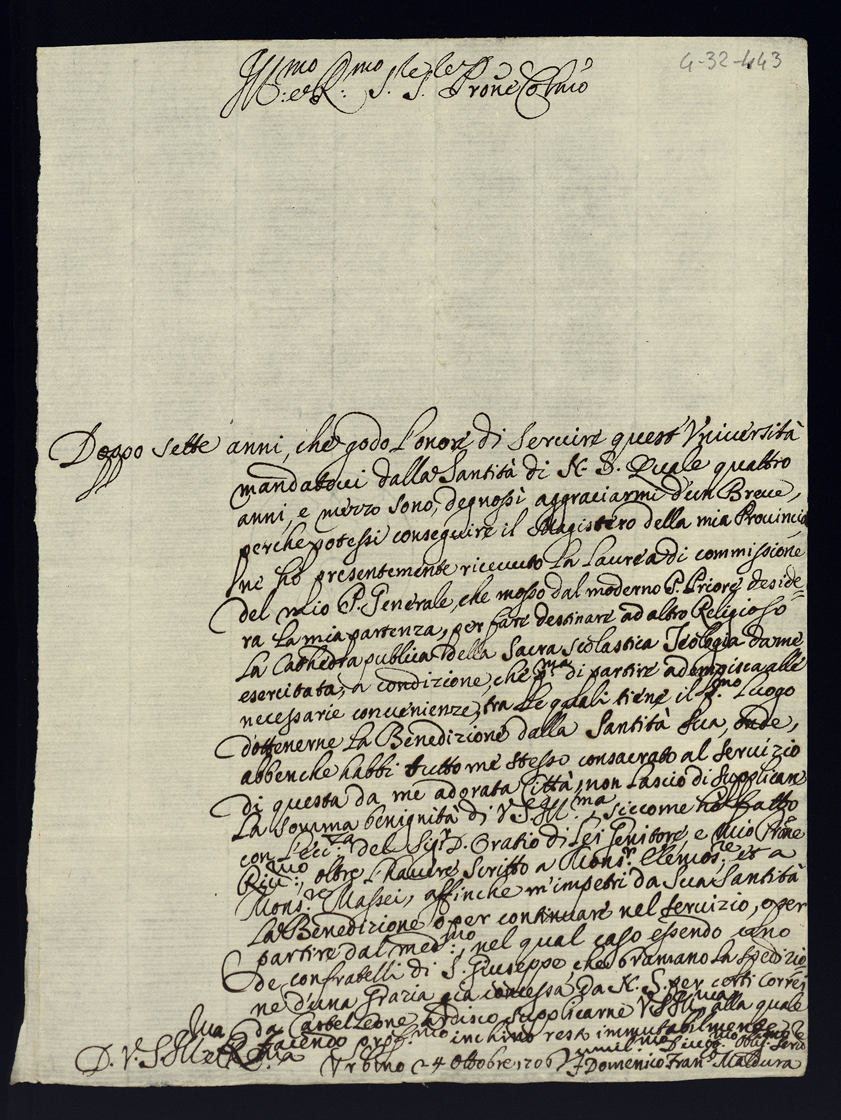 4-32-443
Ill:mo e R:mo S.re S.re Prōne Col:mo
Doppo sette anni, che godo l'onore di servire quest'Università
mandatovi dalla Santità di N. S. Quale quattro
anni, e mezzo sono, degnossi aggraciarmi d'un Breve,
perche potessi conseguire il Magistero della mia Provincia
ne hò presentemente ricevuto la Laurea di commissione
del mio P. Generale, che mosso dal moderno P. Priore deside=
ra la mia partenza, per fare destinare ad altro Religioso
la Cathedra publica della Sacra Scolastica Teologia da me
esercitata, a condizione, che p.ma di partire adempisca alle
necessarie convenienze, tra le quali tiene il p.mo Luogo
d'ottenerne la Benedizione dalla Santità Sua, onde,
abbenche habbi tutto me stesso consacrato al servizio
di questa da me adorata Città, non lascio di supplicare
la somma benignità di V S Ill:ma, siccome hò fatto
con l'ecc.za del Sig.r D. Oratio di Lei Genitore, e mio Prōne
Riv:mo, oltre l'havere scritto a Mons.r Elemos.re, et a
Mons.re Massei, affinche m'impetri da Sua Santità
la Benedizione ò per continuare nel servizio, o per
partire dal med:mo, nel qual caso essendo uno
de confratelli di S. Giuseppe, che bramano la spedizio
ne d'una grazia già concessa da N. S. per certi Correi
da Castel Leone, ardisco supplicarne V S Ill:ma alla quale
facendo prof:mo inchino resa immutabilmente
D. V. S Ill:ma e R:ma
Urbino 24 Ottobre 1706
Umil:mo Divot:mo Oblig:mo Serv.re
F. Domenico Fran.o Maldura